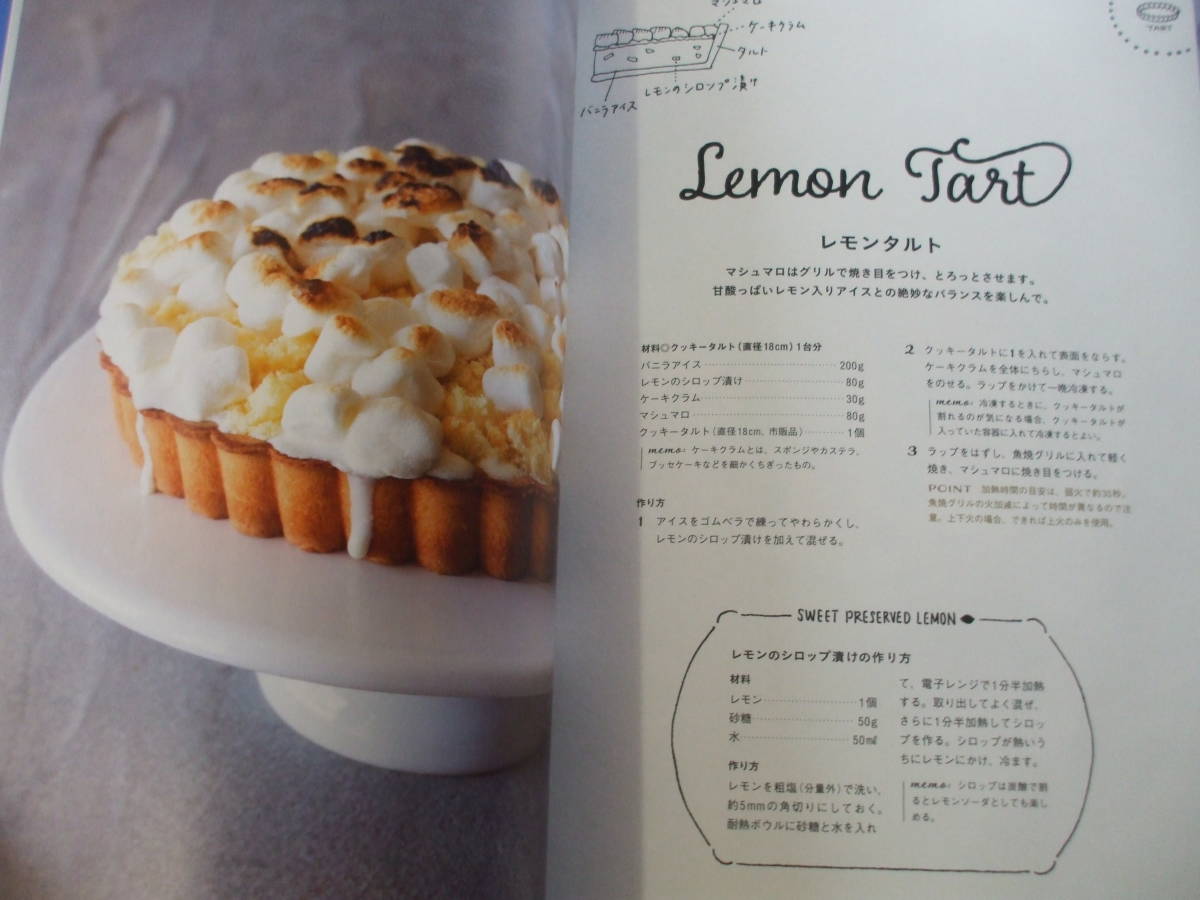 マシュマロ
ケーキクラム
タルト
レモンのシロップ漬け
バニラアイス
TART
Lemon Tart
レモンタルト
マシュマロはグリルで焼き目をつけ、とろっとさせます。
甘酸っぱいレモン入りアイスとの絶妙なバランスを楽しんで。
材料◎クッキータルト(直径18cm)1台分
バニラアイス 200g
レモンのシロップ漬け 80g
ケーキクラム 30g
マシュマロ 80g
クッキータルト(直径18cm、市販品) 1個
memo: ケーキクラムとは、スポンジやカステラ、
ブッセケーキなどを細かくちぎったもの。
作り方
1 アイスをゴムベラで練ってやわらかくし、
レモンのシロップ漬けを加えて混ぜる。
2 クッキータルトに1を入れて表面をならす。
ケーキクラムを全体にちらし、マシュマロ
をのせる。ラップをかけて一晩冷凍する。
memo: 冷凍するときに、クッキータルトが
割れるのが気になる場合、クッキータルトが
入っていた容器に入れて冷凍するとよい。
3 ラップをはずし、魚焼グリルに入れて軽く
焼き、マシュマロに焼き目をつける。
POINT 加熱時間の目安は、弱火で約35秒。
魚焼グリルの火加減によって時間が異なるので注
意。上下火の場合、できれば上火のみを使用。
SWEET PRESERVED LEMON
レモンのシロップ漬けの作り方
材料
レモン 1個
砂糖 50g
水 50ml
作り方
レモンを粗塩(分量外)で洗い、
約5mmの角切りにしておく。
耐熱ボウルに砂糖と水を入れ
て、電子レンジで1分半加熱
する。取り出してよく混ぜ、
さらに1分半加熱してシロッ
プを作る。シロップが熱いう
ちにレモンにかけ、冷ます。
memo: シロップは炭酸で割
るとレモンソーダとしても楽し
める。